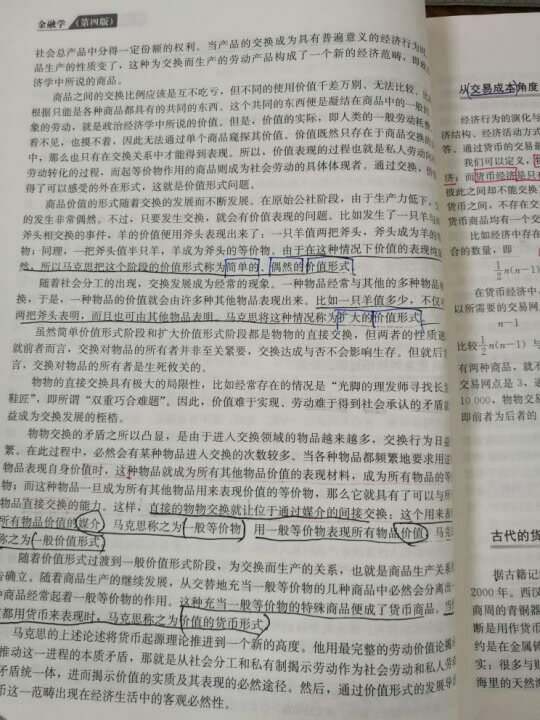 金融学（第四版）
社会总产品中分得一定份额的权利。当产品的交换成为具有普遍意义的经济行为时
品生产的性质变了，这种为交换而生产的劳动产品构成了一个新的经济范畴，即
济学中所说的商品。
商品之间的交换比例应该是互不吃亏，但不同的使用价值千差万别、无法比较，
根据只能是各种商品都具有的共同的东西。这个共同的东西便是凝结在商品中的一般的
象的劳动，就是政治经济学中所说的价值。但是，价值的实际，即人类的一般劳动耗费
看不见，也摸不着，因此无法通过单个商品窥探其价值。价值既然只存在于商品交换的
中，那么也只有在交换关系中才能得到表现。所以，价值表现的过程也就是私人劳动向
劳动转化的过程，而起等价物作用的商品则成为社会劳动的具体体现者。通过交换，价值
得了可以感受的外在形式，这就是价值形式问题。
商品价值的形式随着交换的发展而不断发展。在原始公社阶段，由于生产力低下，交
的发生非常偶然。不过，只要发生交换，就会有价值表现的问题。比如发生了一只羊与
斧头相交换的事件，羊的价值便用斧头表现出来了：一只羊值两把斧头，斧头成为羊的等
物；同理，一把斧头值半只羊，羊成为斧头的等价物。由于在这种情况下价值的表现纯
然，所以马克思把这个阶段的价值形式称为简单的、偶然的价值形式。
随着社会分工的出现，交换发展成为经常的现象。一种物品经常与其他的多种物品
换，于是，一种物品的价值就会由许多种其他物品表现出来。比如一只羊值多少，不仅
两把斧头表明，而且也可由其他物品表明。马克思将这种情况称为扩大的价值形式。
虽然简单价值形式阶段和扩大价值形式阶段都是物物的直接交换，但两者的性质
就前者而言，交换对物品的所有者并非至关紧要，交换达成与否不会影响生存。但就后
言，交换对物品的所有者是生死攸关的。
物物的直接交换具有极大的局限性，比如经常存在的情况是“光脚的理发师寻找长
鞋匠”，即所谓“双重巧合难题”。因此，价值难于实现、劳动难于得到社会承认的矛盾
益成为交换发展的桎梏。
物物交换的矛盾之所以凸显，是由于进入交换领域的物品越来越多，交换行为日益
繁。在此过程中，必然会有某种物品进入交换的次数较多。当各种物品都频繁地要求用这
物品表现自身价值时，这种物品就成为所有其他物品价值的表现材料，成为所有物品的等
物；而这种物品一旦成为所有其他物品用来表现价值的等价物，那么它就具有了可以与所
物品直接交换的能力。这样，直接的物物交换就让位于通过媒介的间接交换；这个用来表
所有物品价值的媒介，马克思称之为一般等价物；用一般等价物表现所有物品价值，马克
称之为一般价值形式。
随着价值形式过渡到一般价值形式阶段，为交换而生产的关系，也就是商品生产关系
告确立。随着商品生产的继续发展，从交替地充当一般等价物的几种商品中必然会分离出
种商品经常起着一般等价物的作用。这种充当一般等价物的特殊商品便成了货币商品，当
都用货币来表现时，马克思称之为价值的货币形式。
马克思的上述论述将货币起源理论推进到一个新的高度。他用最完整的劳动价值论揭
推动这一进程的本质矛盾，那就是从社会分工和私有制揭示劳动作为社会劳动和私人劳动
矛盾统一体，进而揭示价值的实质及其表现的必然途径。然后，通过价值形式的发展导
币这一范畴出现在经济生活中的客观必然性。
从交易成本角度
经济行为的演化与
济结构、经济活动方式
答。通过货币的交易最
我们可以定义，
济；而货币经济是只
彼此之间却不能交换
货币之间，不存在交
货币商品均有一个交
比如经济中存在
合的数量，即
1/2 n(n−1)
在货币经济中，
以所需要的交易网
n−1
比较 1/2 n(n−1) 与
有两种商品，就不
交易网点是 3，通
10 000，物物交易
即前者为后者的
古代的货
据古籍记
2000 年。西汉
商周的青铜器
断是用作货币
约是在金属铸
实：很多与财
海里的天然海